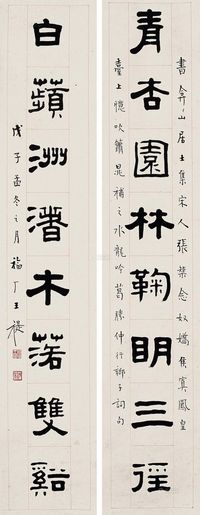 書弇山居士集宋人張榘念奴嬌侯寘鳳皇
青杏園林鞠明三徑
臺上憶吹簫晁補之水龍吟葛勝仲行鄉子詞句
白蘋洲渚木落雙谿
戊子孟冬之月福厂王禔